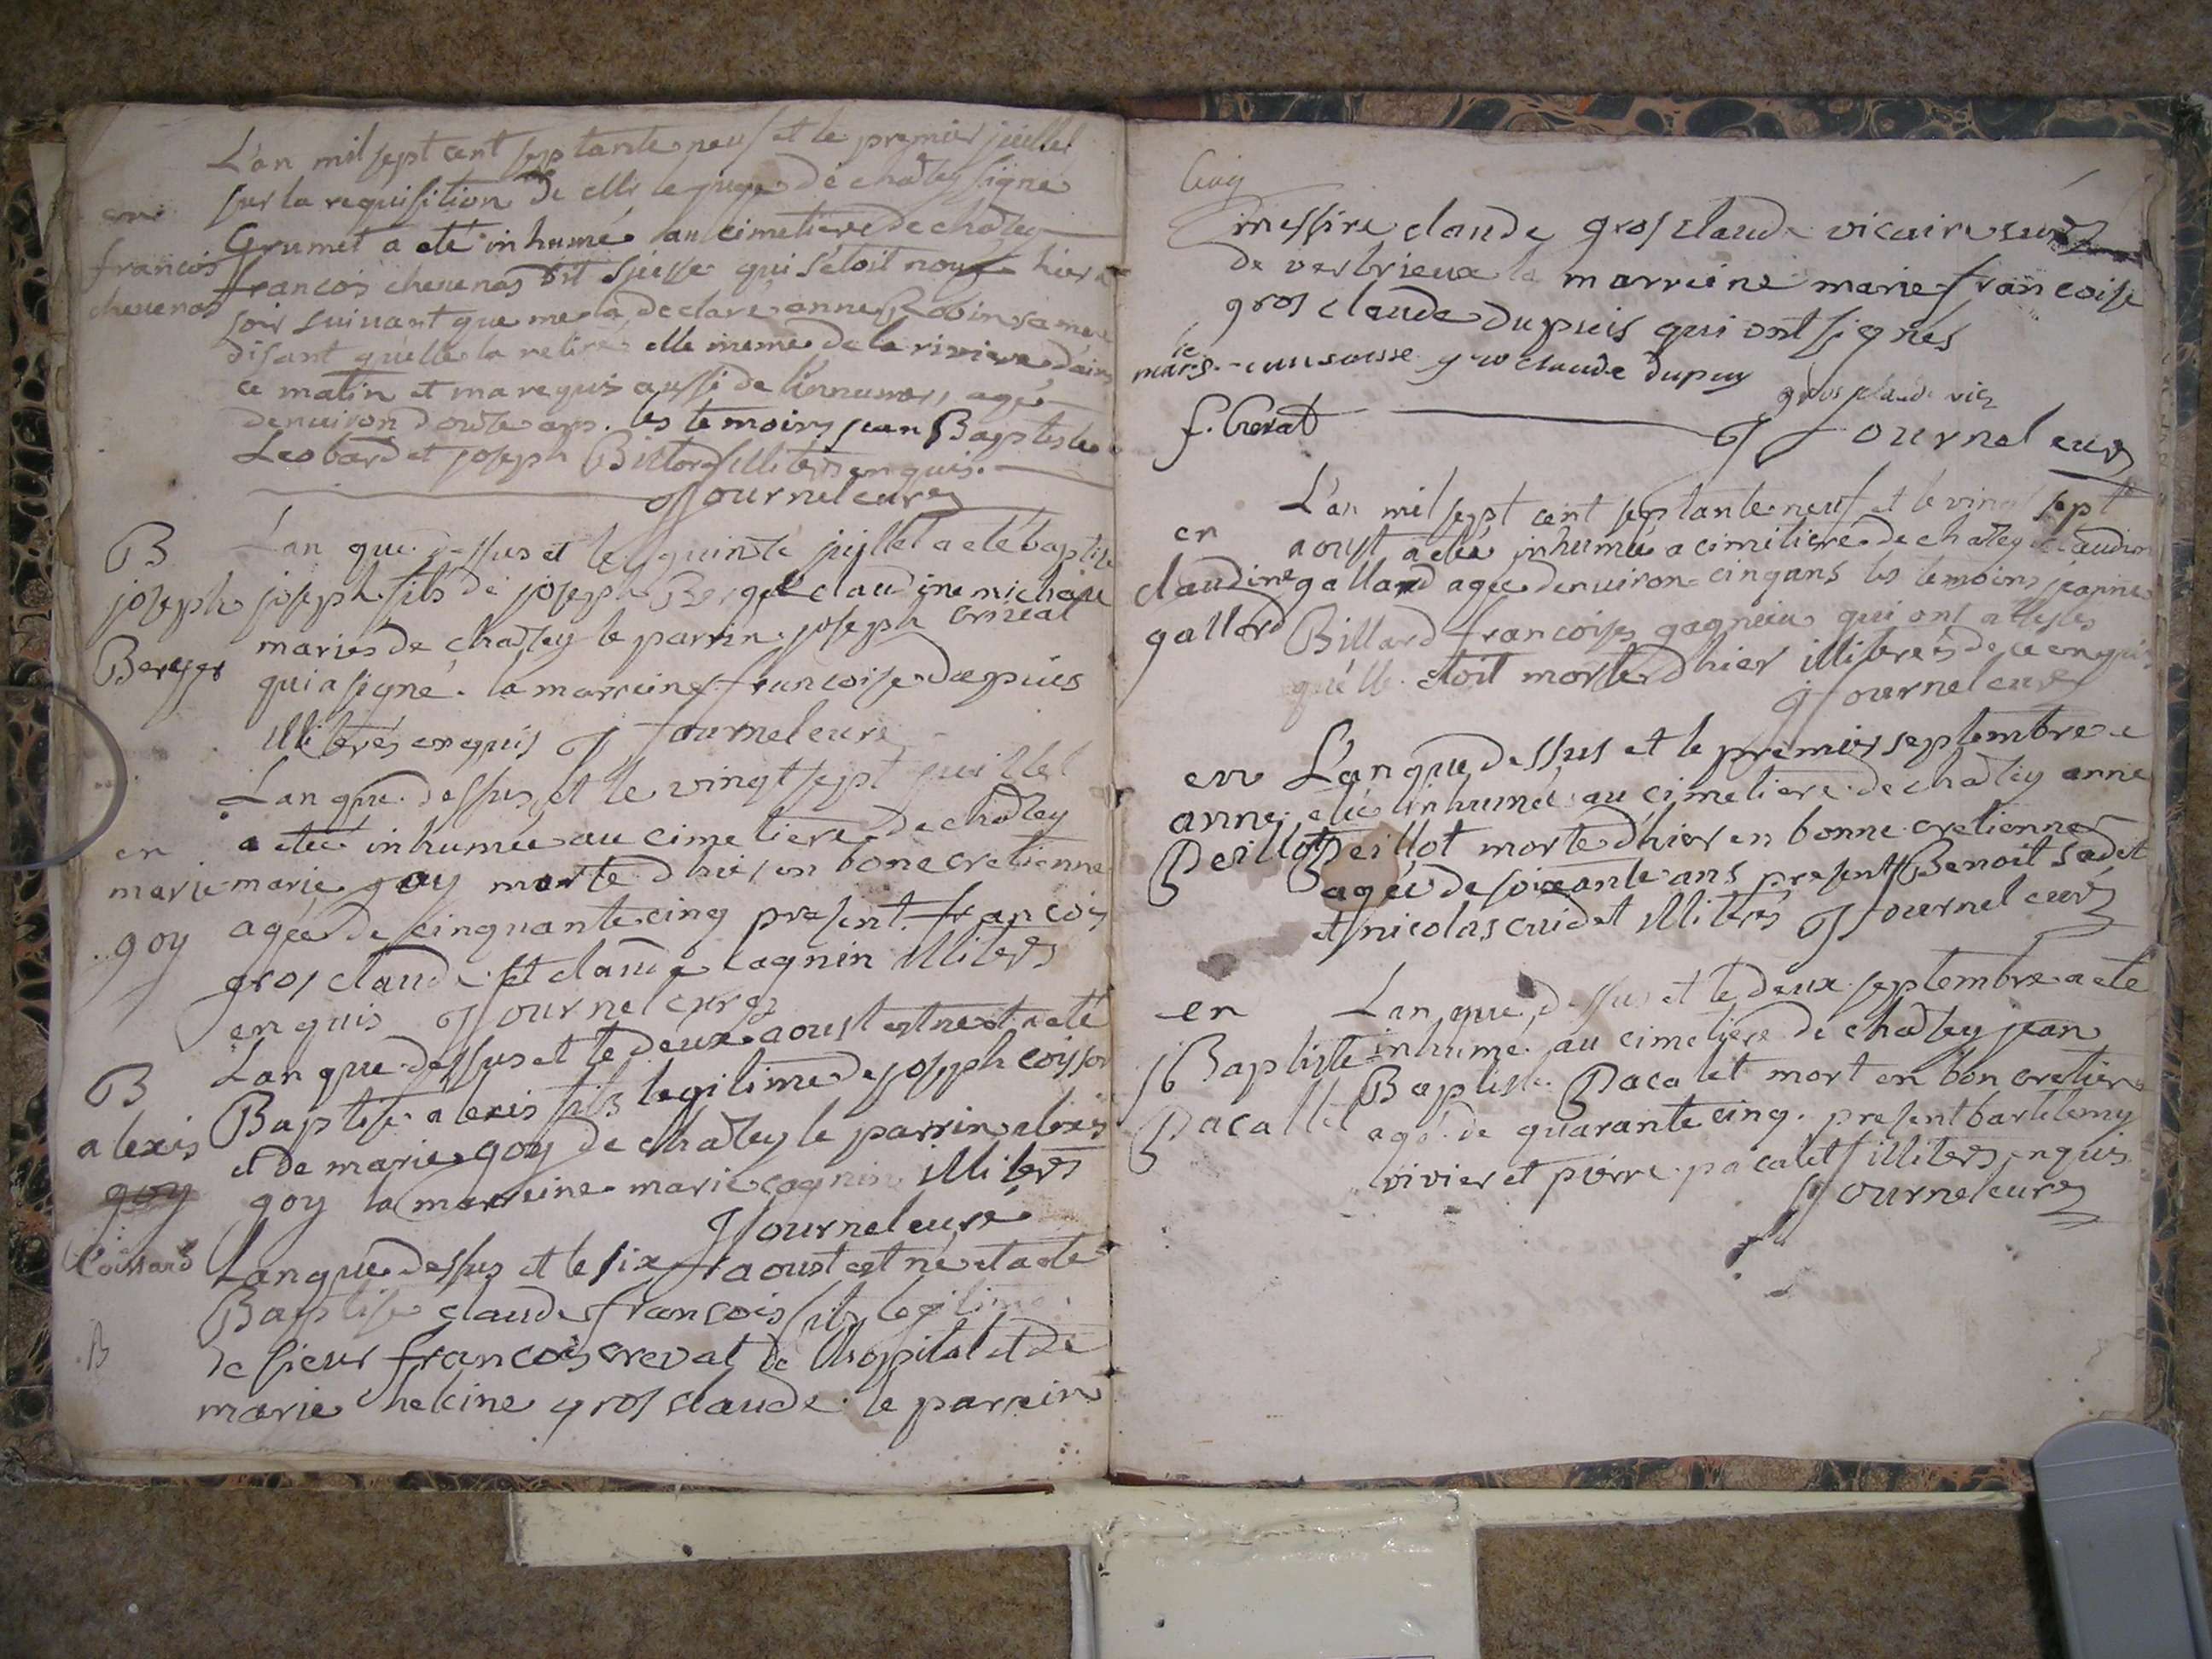 L'an mil sept cent septante neuf et le premier juillet
sur la requisition de le juge de chatey signe
en
Grumet a eté inhumé au cimetiere de chatey
francois
francois chevenas dit suisse qui s'étoit noyé hier
chevenas
soir suivant que me la declaré anne Robin sa mere
disant qu'elle la retiré elle meme de la riviere d'ain
ce matin et ma requis aussi de l'innumer, agé
denuiron douze ans. les temoins jean Baptiste
Leobard et joseph illiterés enquis.
J fournel curé
B
L'an que dessus et le quinze juillet a eté baptise
joseph
joseph fils de joseph Berger et claudine michaux
Berger
mariés de chatey le parrin joseph
qui a signé. la marreine francoise dupuis
illiterés enquis J fournel curé
L'an que dessus et le vingt sept juillet
en
a eteé inhumée au cimetiere de chatey
marie
marie goy morte d'hier en bone cretienne
goy
ageé de cinquante cinq present francois
gros claude et claude cagnin illiterés
enquis J fournel curé
B
L'an que dessus et le deux aoust est né et a eté
alexis
Baptise alexis fils legitime de joseph coissard
goy
et de marie goy de chatey le parrin alexis
goy la marreine marie cagnin illiterés
J fournel curé
Coissard
L'an que dessus et le six aoust est né et a eté
Baptise claude francois fils legitime
B
de sieur francois crevat de l'hopital et de
marie heleine gros claude. le parrein
cinq
messire claude gros claude vicaire
de verbrieux la marreine marie francoise
gros claude dupuis qui ont signés
gro claude dupuy
gros claude vic
f. Crevat
J fournel curé
L'an mil sept cent septante neuf et le vingt sept
en
aoust a eteé inhumée a cimetiere de chatey claudine
claudine
galland ageé denuiron cinq ans les temoins jeanne
gallard
Billard francoise gagneux qui ont attestés
qu'elle étoit morte d'hier illiterés de ce enquis
J fournel curé
en
L'an que dessus et le premier septembre a
anne
eteé inhumeé au cimetiere de chatey anne
Peillot
Peillot morte d'hier en bonne cretienne
ageé de soixante ans present Benoit sadet
et nicolas cuidet illiterés J fournel curé
en
L'an que dessus et le deux septembre a eté
j Baptiste
inhumé au cimetiere de chatey jean
Pacallet
Baptiste Pacalet mort en bon cretien
agé de quarante cinq. present bartelemy
vivier et pierre pacalet illiterés enquis
J fournel curé